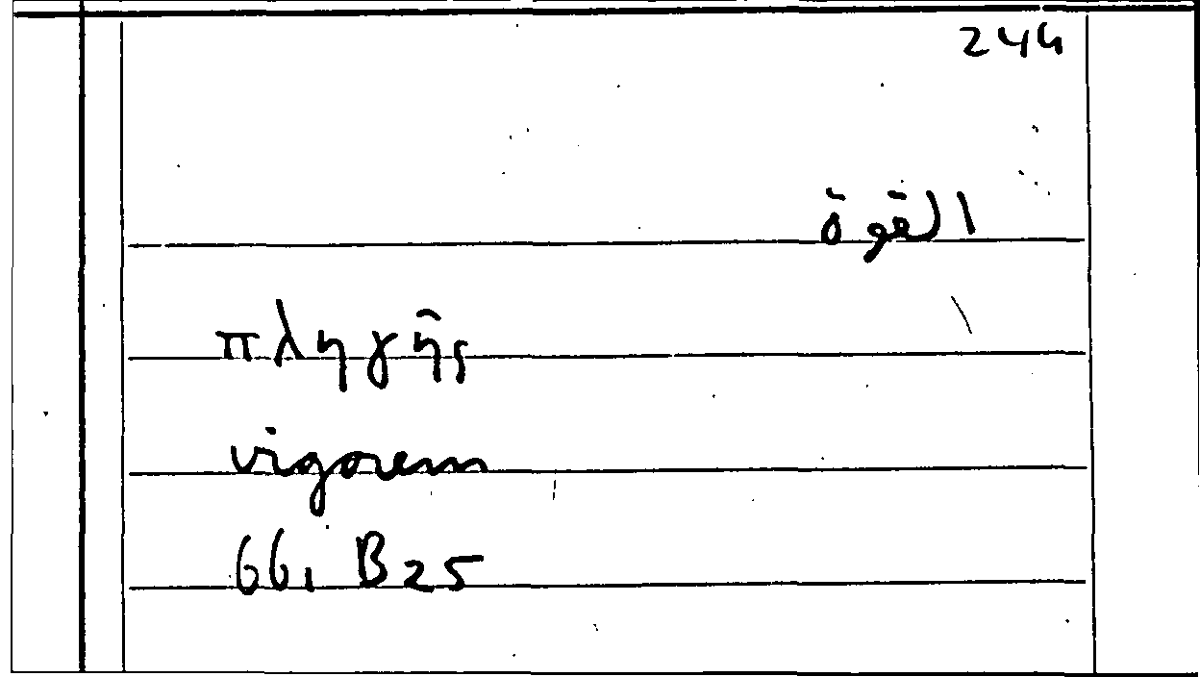 244
القوة
πληγῆς
vigorem
661 B25